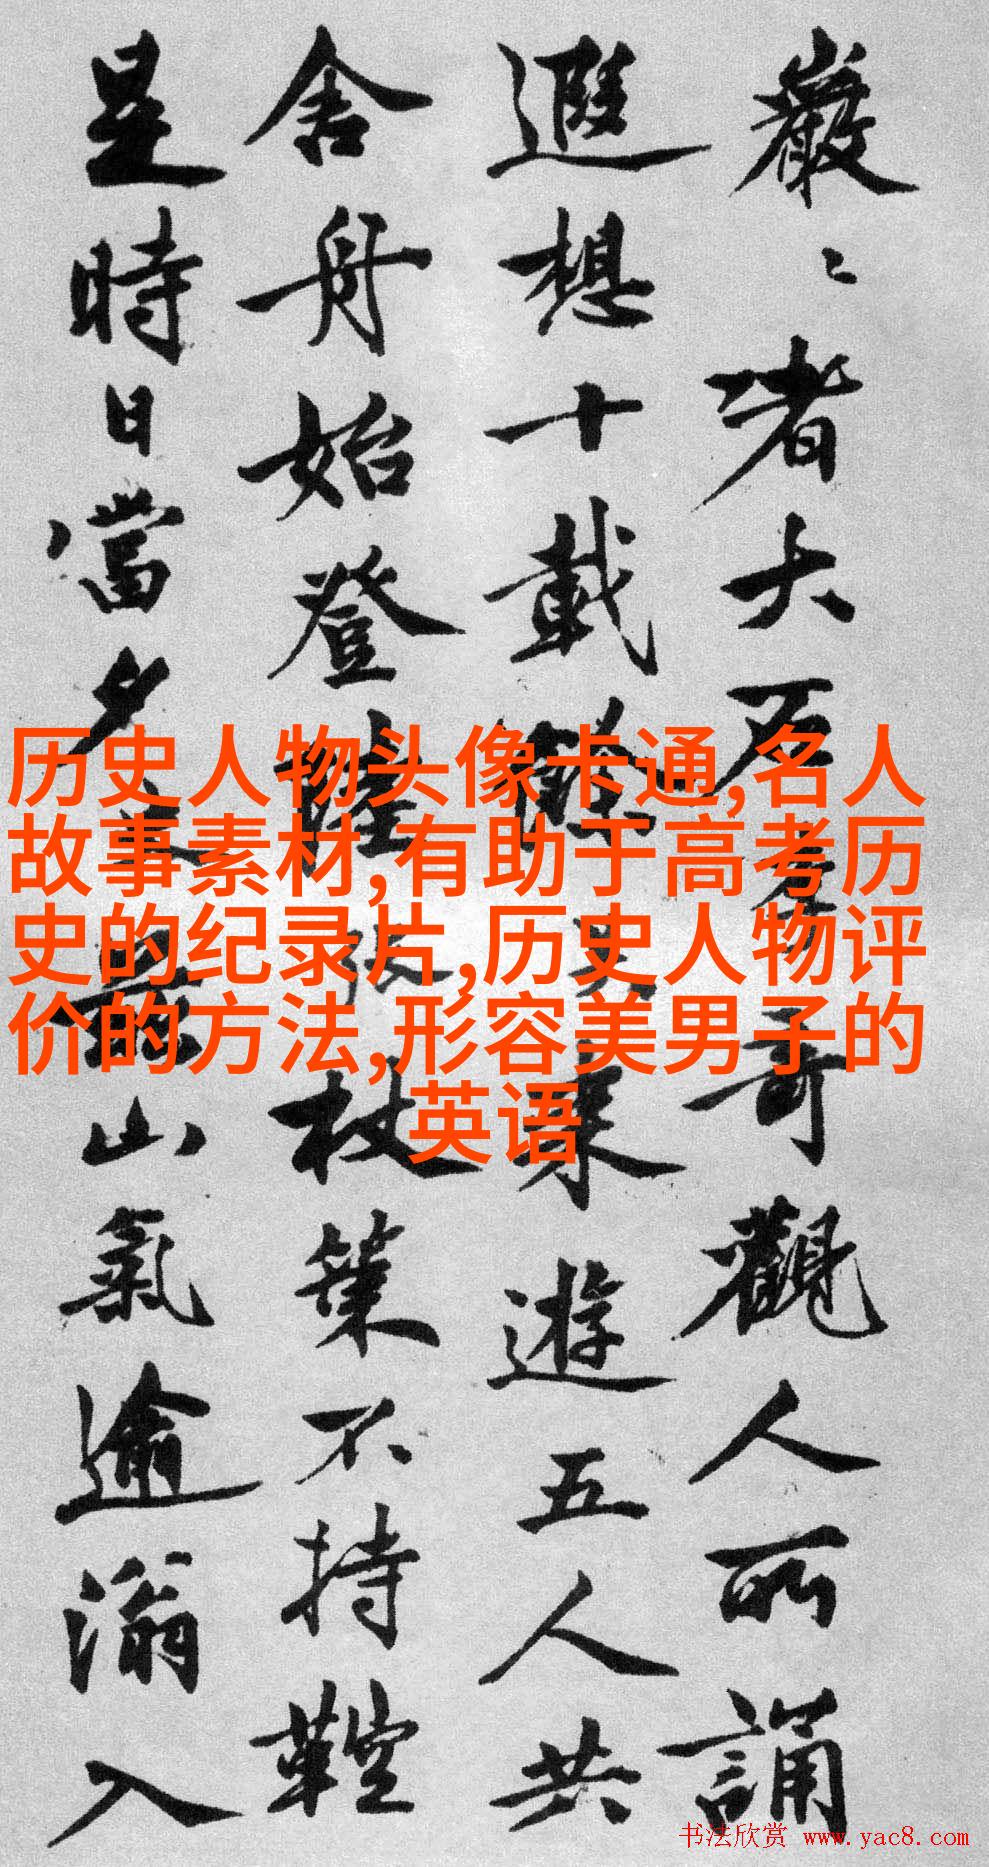 巖〻者大石奇觀人所誦
遐想十載果遊五人共
舍舟始登陸杖策不持鞚
是時日當夕山氣逾滃入
历史人物头像卡通,名人
故事素材,有助于高考历
史的纪录片,历史人物评
价的方法,形容美男子的
英语
书法欣赏 www.yac8.com